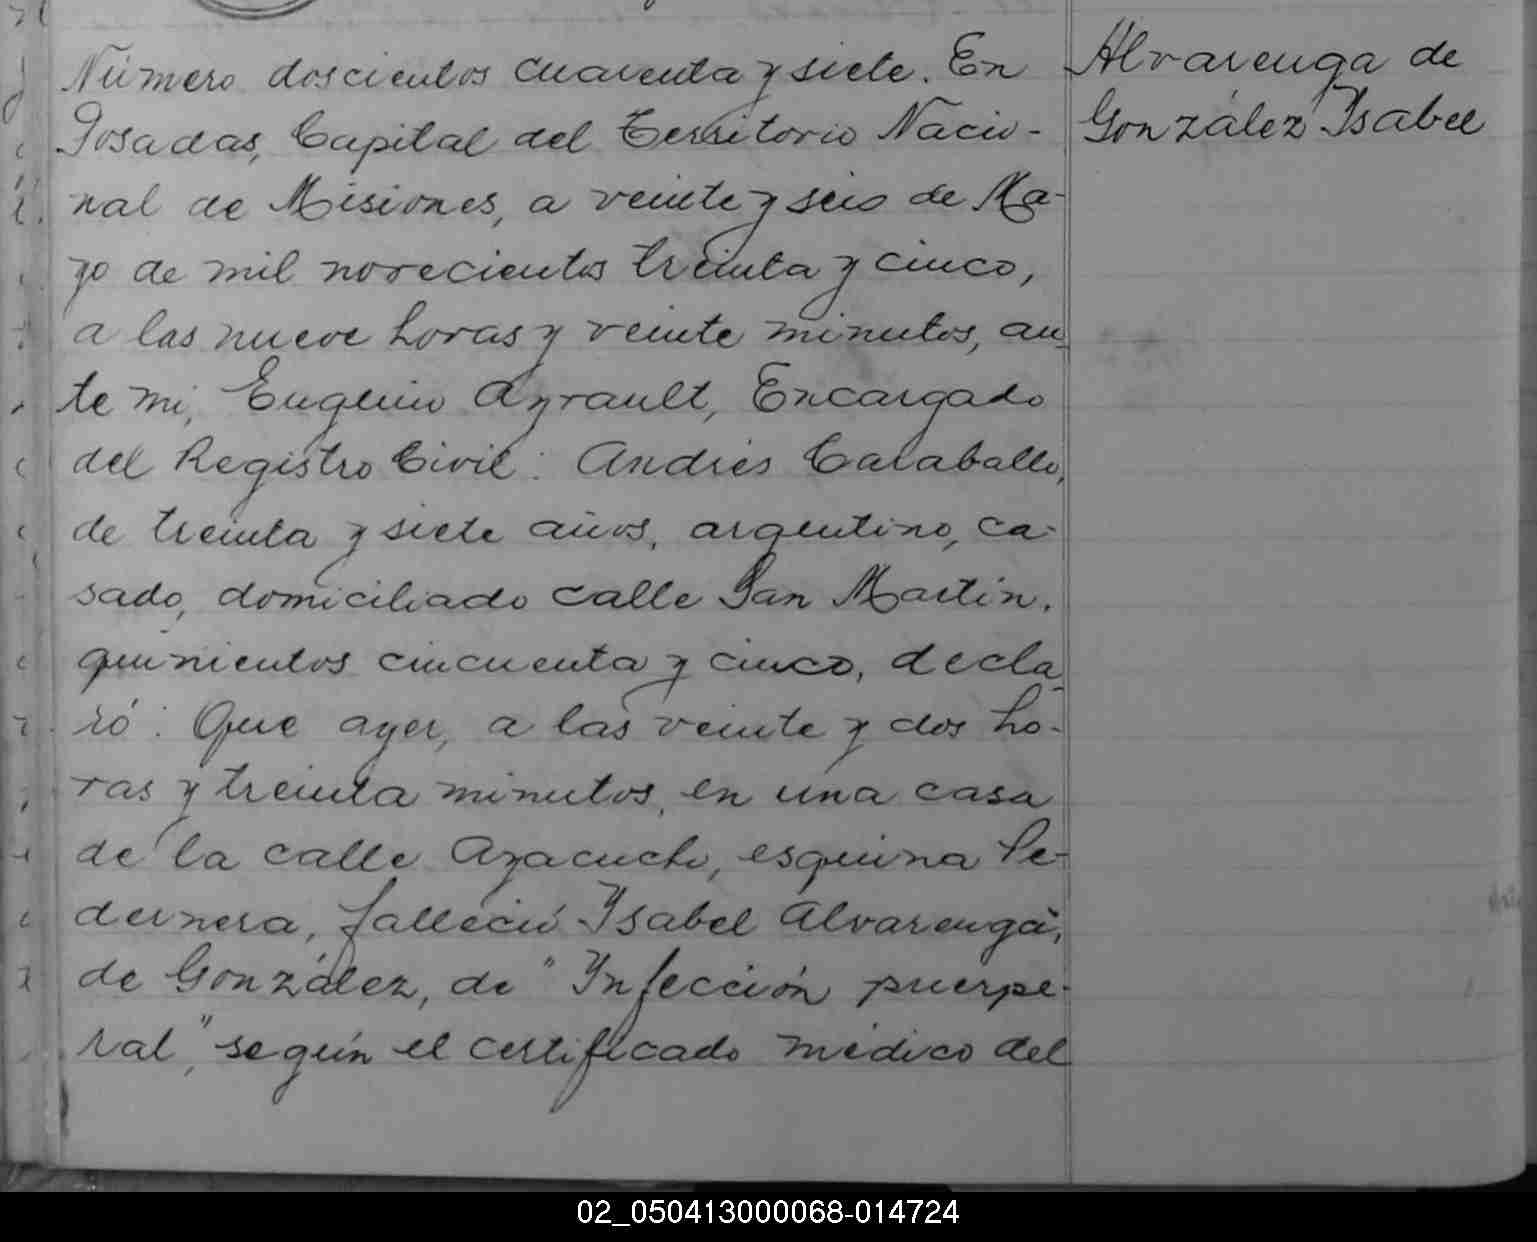 Número doscientos cuarenta y siete. En
Posadas, Capital del Territorio Nacio-
nal de Misiones, a veinte y seis de Ma-
yo de mil novecientos treinta y cinco,
a las nueve horas y veinte minutos, an-
te mi, Eugenio Ayrault, Encargado
del Registro Civil: Andrés Caraballo,
de treinta y siete años, argentino, ca-
sado, domiciliado calle San Martin,
quinientos cincuenta y cinco, decla-
ró: Que ayer, a las veinte y dos ho-
ras y treinta minutos, en una casa
de la calle Ayacucho, esquina Pe-
dernera, falleció Ysabel Alvarenga,
de González, de "Infección puerpe-
ral," según el certificado médico del
Alvarenga de
González Ysabel
02_050413000068-014724